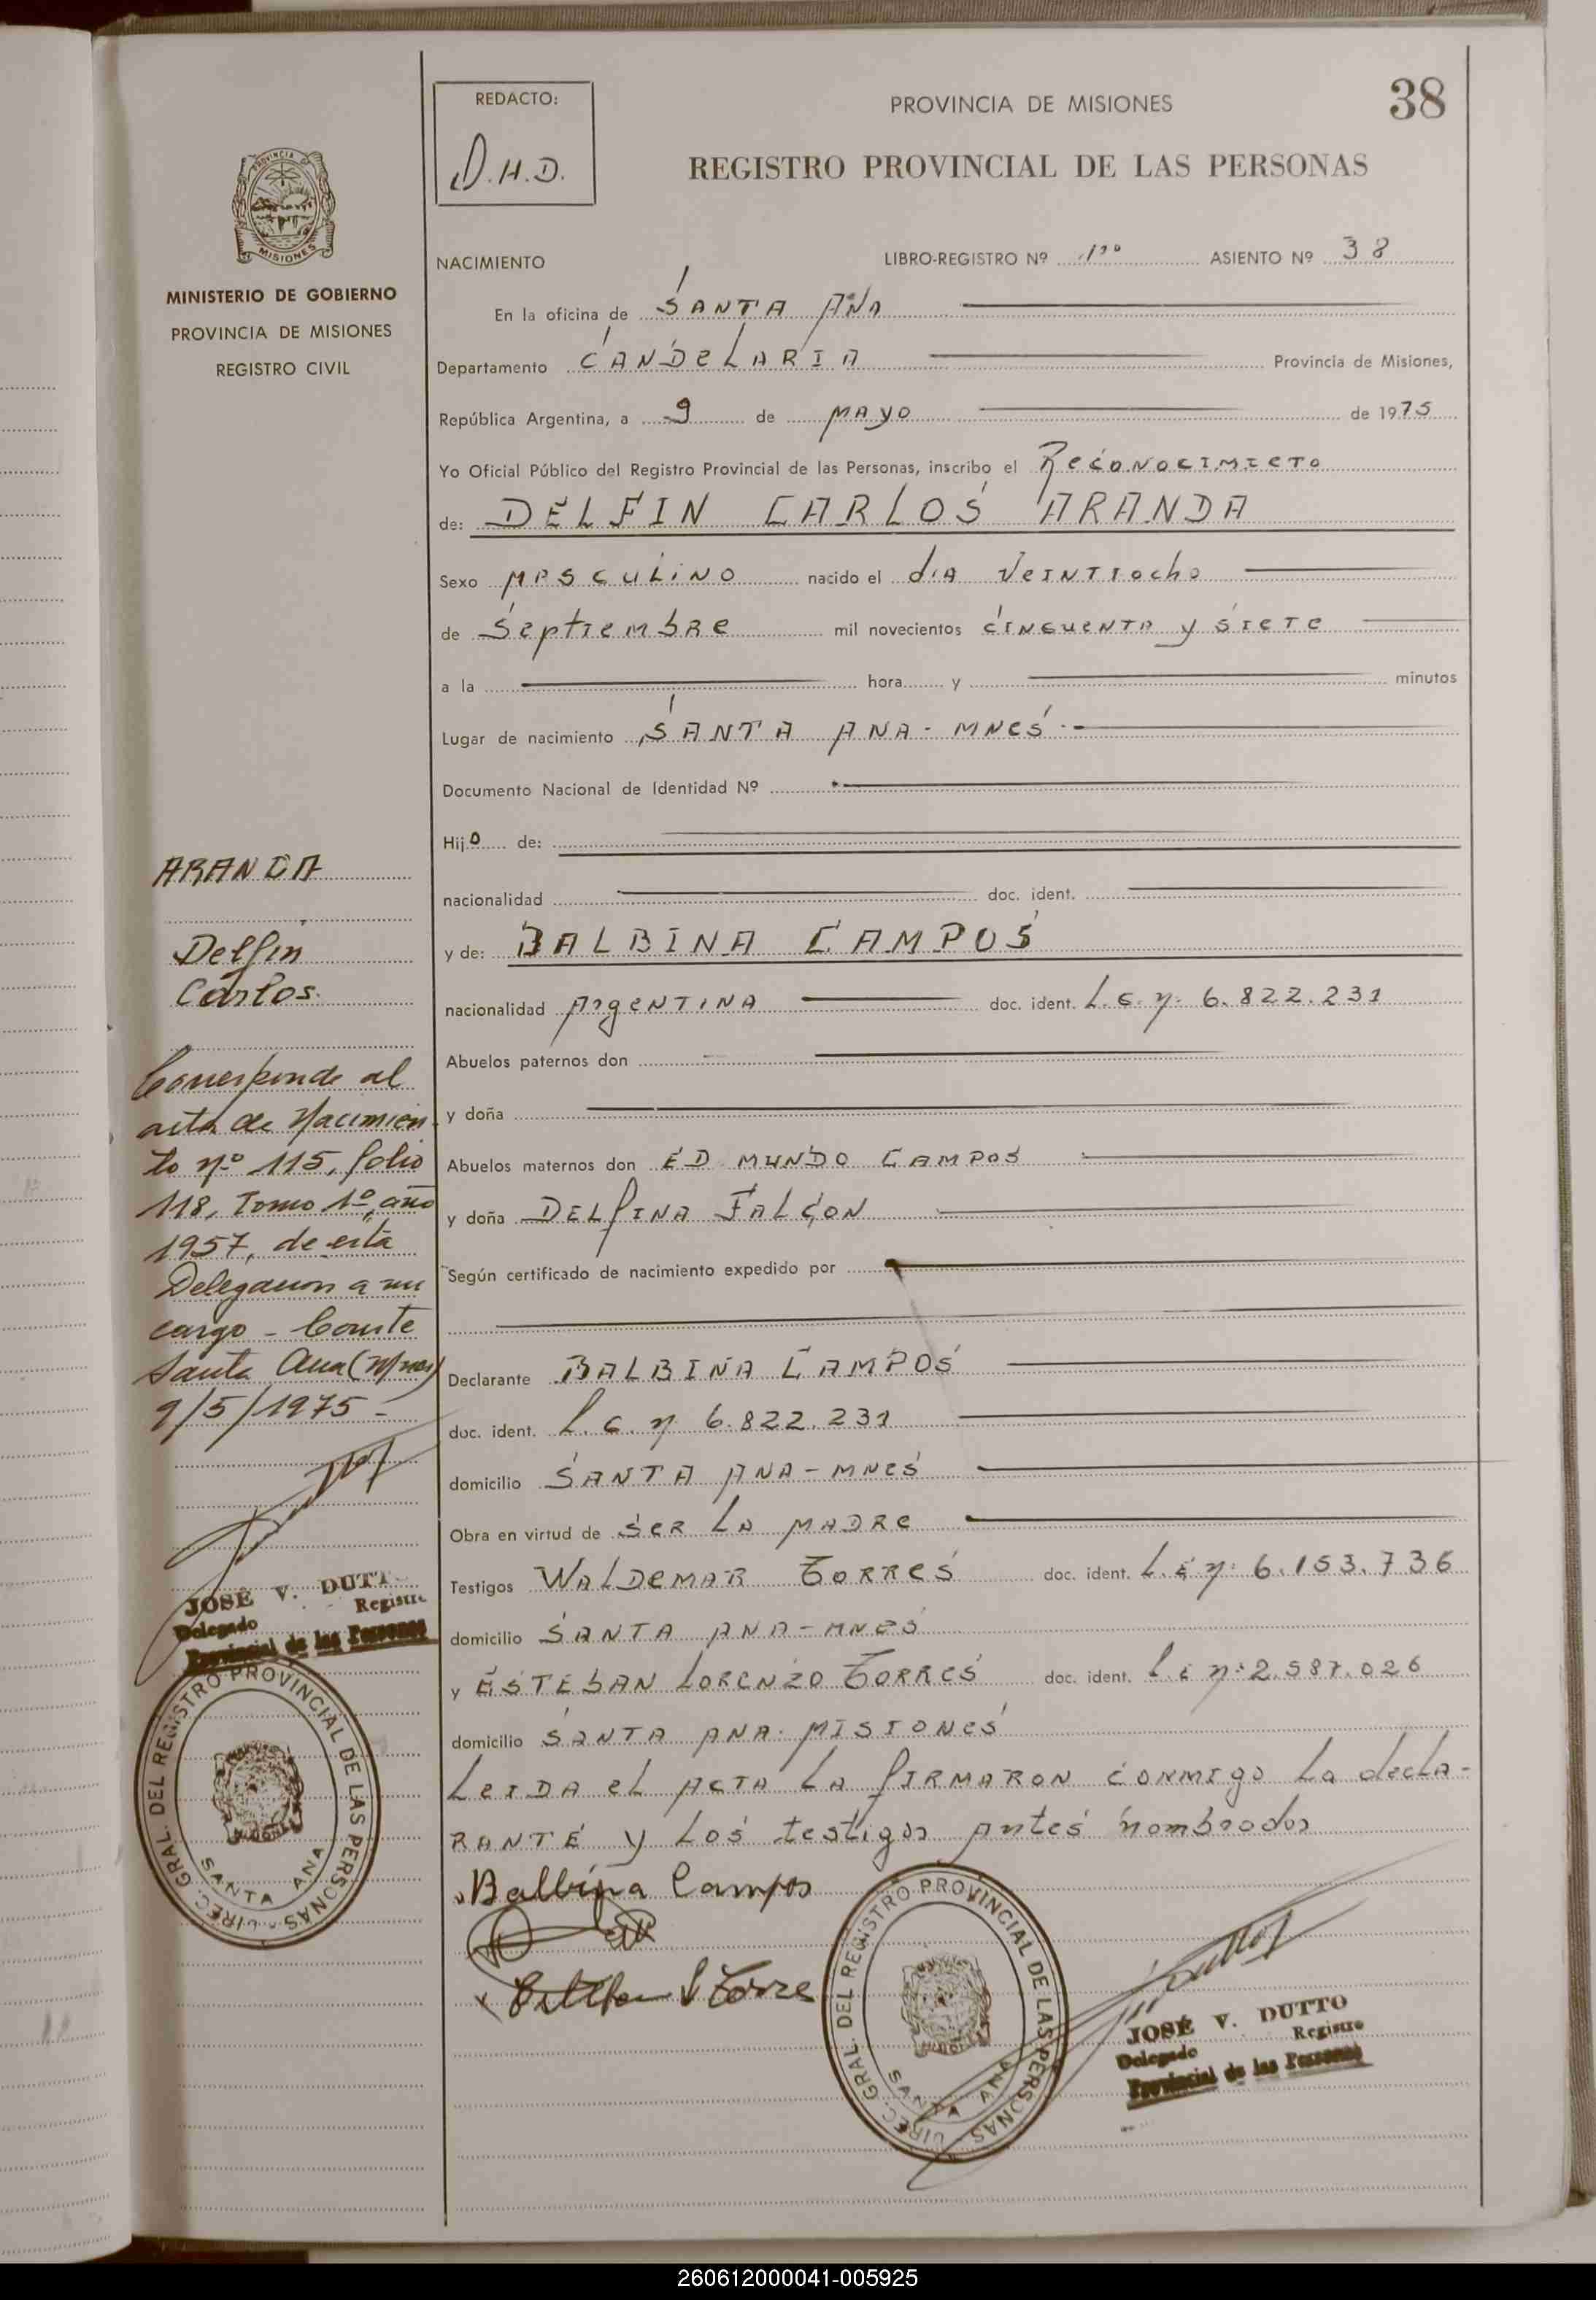 REDACTO:
D.H.D.
PROVINCIA DE MISIONES
38
REGISTRO PROVINCIAL DE LAS PERSONAS
MINISTERIO DE GOBIERNO
PROVINCIA DE MISIONES
REGISTRO CIVIL
NACIMIENTO LIBRO-REGISTRO Nº 1º ASIENTO Nº 38
En la oficina de SANTA ANA
Departamento CANDELARIA Provincia de Misiones,
República Argentina, a 9 de MAYO de 1975
Yo Oficial Público del Registro Provincial de las Personas, inscribo el RECONOCIMIETO
de: DELFIN CARLOS ARANDA
Sexo MASCULINO nacido el dia VEINTIOCHO
de Septiembre mil novecientos CINCUENTA y SIETE
a la hora y minutos
Lugar de nacimiento SANTA ANA - MNES
Documento Nacional de Identidad Nº
Hijo de:
nacionalidad doc. ident.
y de: BALBINA CAMPOS
nacionalidad ARGENTINA doc. ident. L.C. Nº 6.822.231
Abuelos paternos don
y doña
Abuelos maternos don EDMUNDO CAMPOS
y doña DELFINA FALCON
Según certificado de nacimiento expedido por
Declarante BALBINA CAMPOS
doc. ident. L.C. Nº 6.822.231
domicilio SANTA ANA - MNES
Obra en virtud de SER LA MADRE
Testigos WALDEMAR TORRES doc. ident. L.E Nº 6.153.736
domicilio SANTA ANA - MNES
y ESTEBAN LORENZO TORRES doc. ident. L.E Nº 2.587.026
domicilio SANTA ANA - MISIONES
LEIDA EL ACTA LA FIRMARON CONMIGO LA DECLA-
RANTE y LOS testigos ANTES nombrados
Balbina Campos
Esteban L Torre
ARANDA
Delfin
Carlos.
Corresponde al
acta de Nacimien
to nº 115, folio
118, Tomo 1º, año
1957, de esta
Delegacion a mi
cargo - Conste
Santa Ana (Mnes)
9/5/1975 -
JOSÉ V. DUTT
Delegado Registro
Provincial de las Personas
DIREC. GRAL. DEL REGISTRO PROVINCIAL DE LAS PERSONAS
SANTA ANA
DIREC. GRAL. DEL REGISTRO PROVINCIAL DE LAS PERSONAS
SANTA ANA
JOSÉ V. DUTTO
Delegado Registro
Provincial de las Personas
260612000041-005925